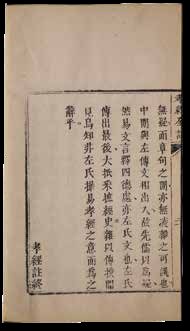 無疑而章句之間亦無淩雜之可議也
中間與左傳文相出入故先儒以為疑
然易文言釋四德處亦左氏文也左氏
傳出最後大抵采摭經史雜以傳聞
見烏知非左氏摭易孝經之意而為之
辭乎
孝經註終